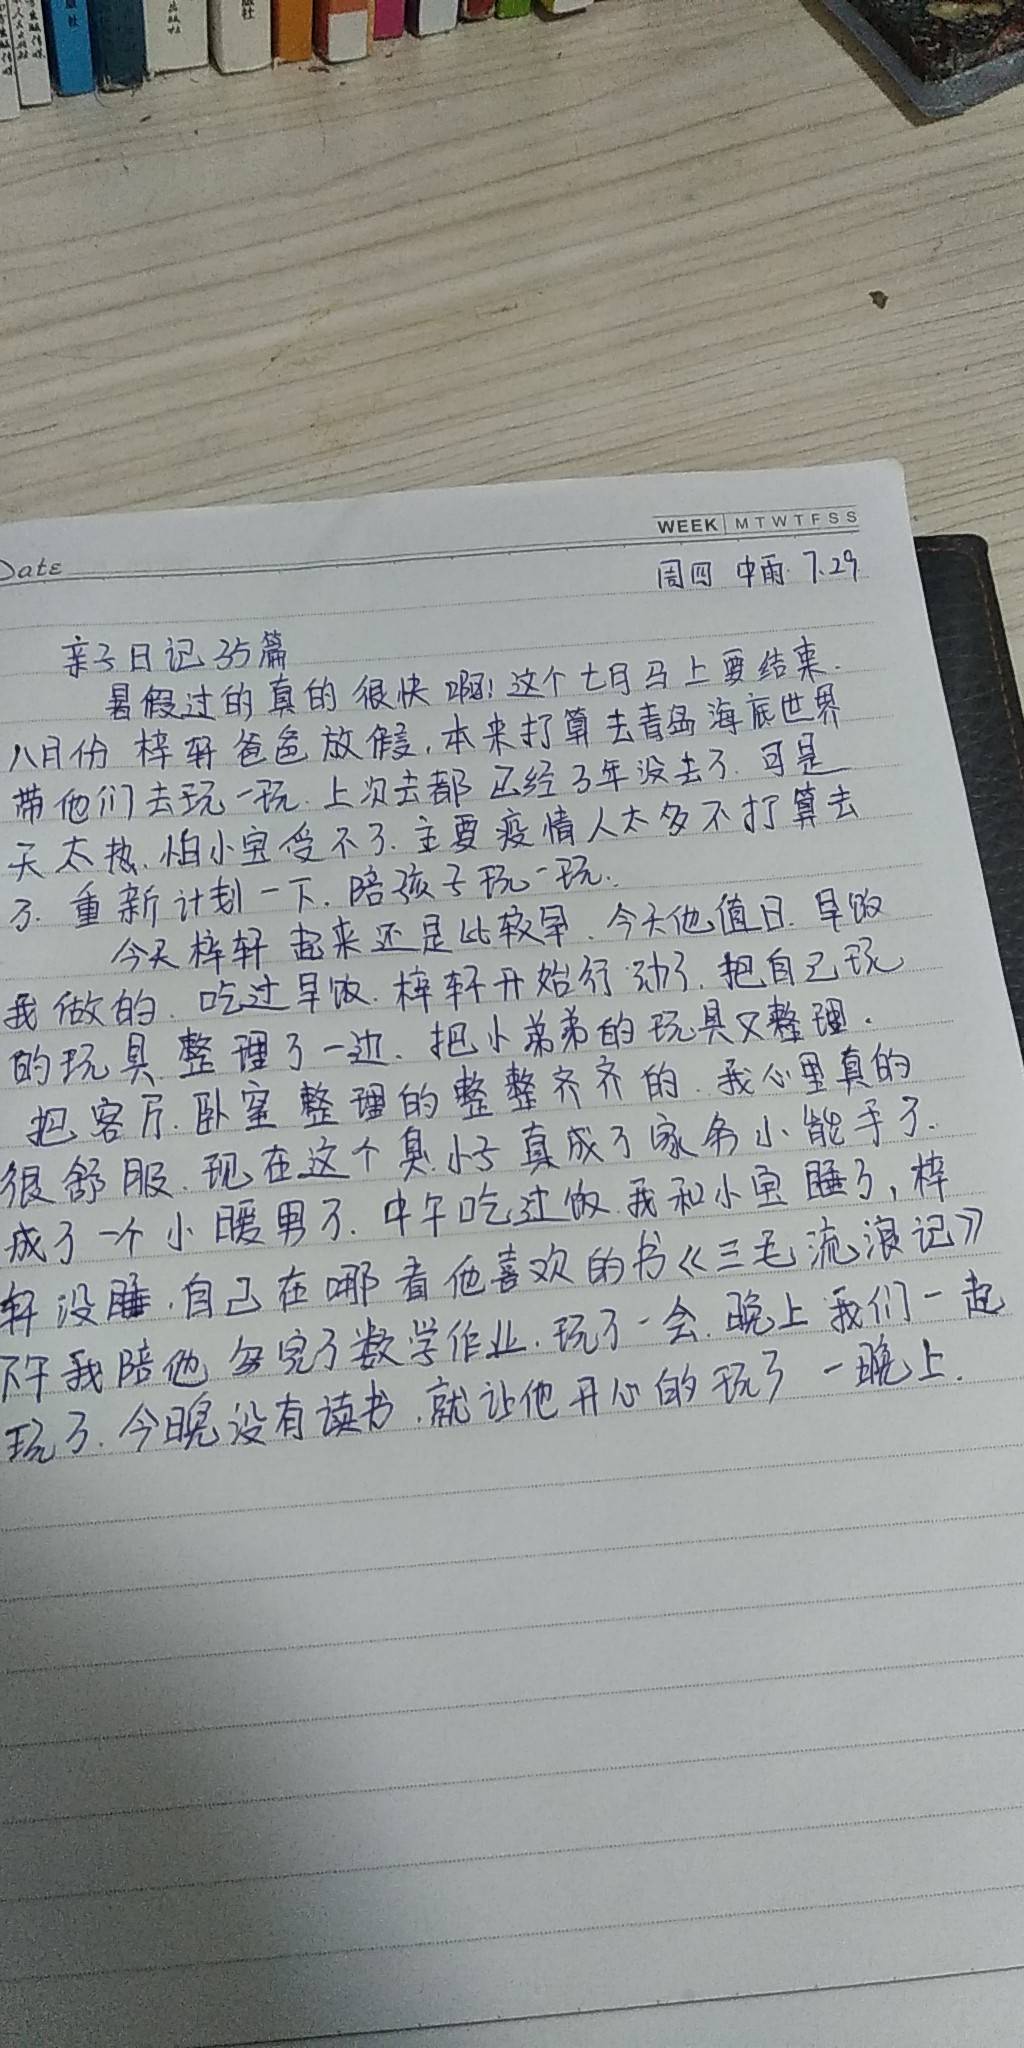 WEEK M T W T F S S
Date
周四 中雨 7.29
亲子日记 35篇
暑假过的真的很快啊!这个七月马上要结束.
八月份 梓轩爸爸放假,本来打算去青岛海底世界
带他们去玩一玩.上次去都已经3年没去了.可是
天太热.怕小宝受不了.主要疫情人太多不打算去
了.重新计划一下.陪孩子玩一玩.
今天梓轩起来还是比较早.今天他值日.早饭
我做的.吃过早饭.梓轩开始行动了.把自己玩
的玩具整理了一边.把小弟弟的玩具又整理.
把客厅.卧室整理的整整齐齐的.我心里真的
很舒服.现在这个臭小子真成了家务小能手了.
成了一个小暖男了.中午吃过饭.我和小宝睡了,梓
轩没睡.自己在哪看他喜欢的书《三毛流浪记》
下午我陪他写完了数学作业.玩了一会.晚上我们一起
玩了.今晚没有读书.就让他开心的玩了一晚上.